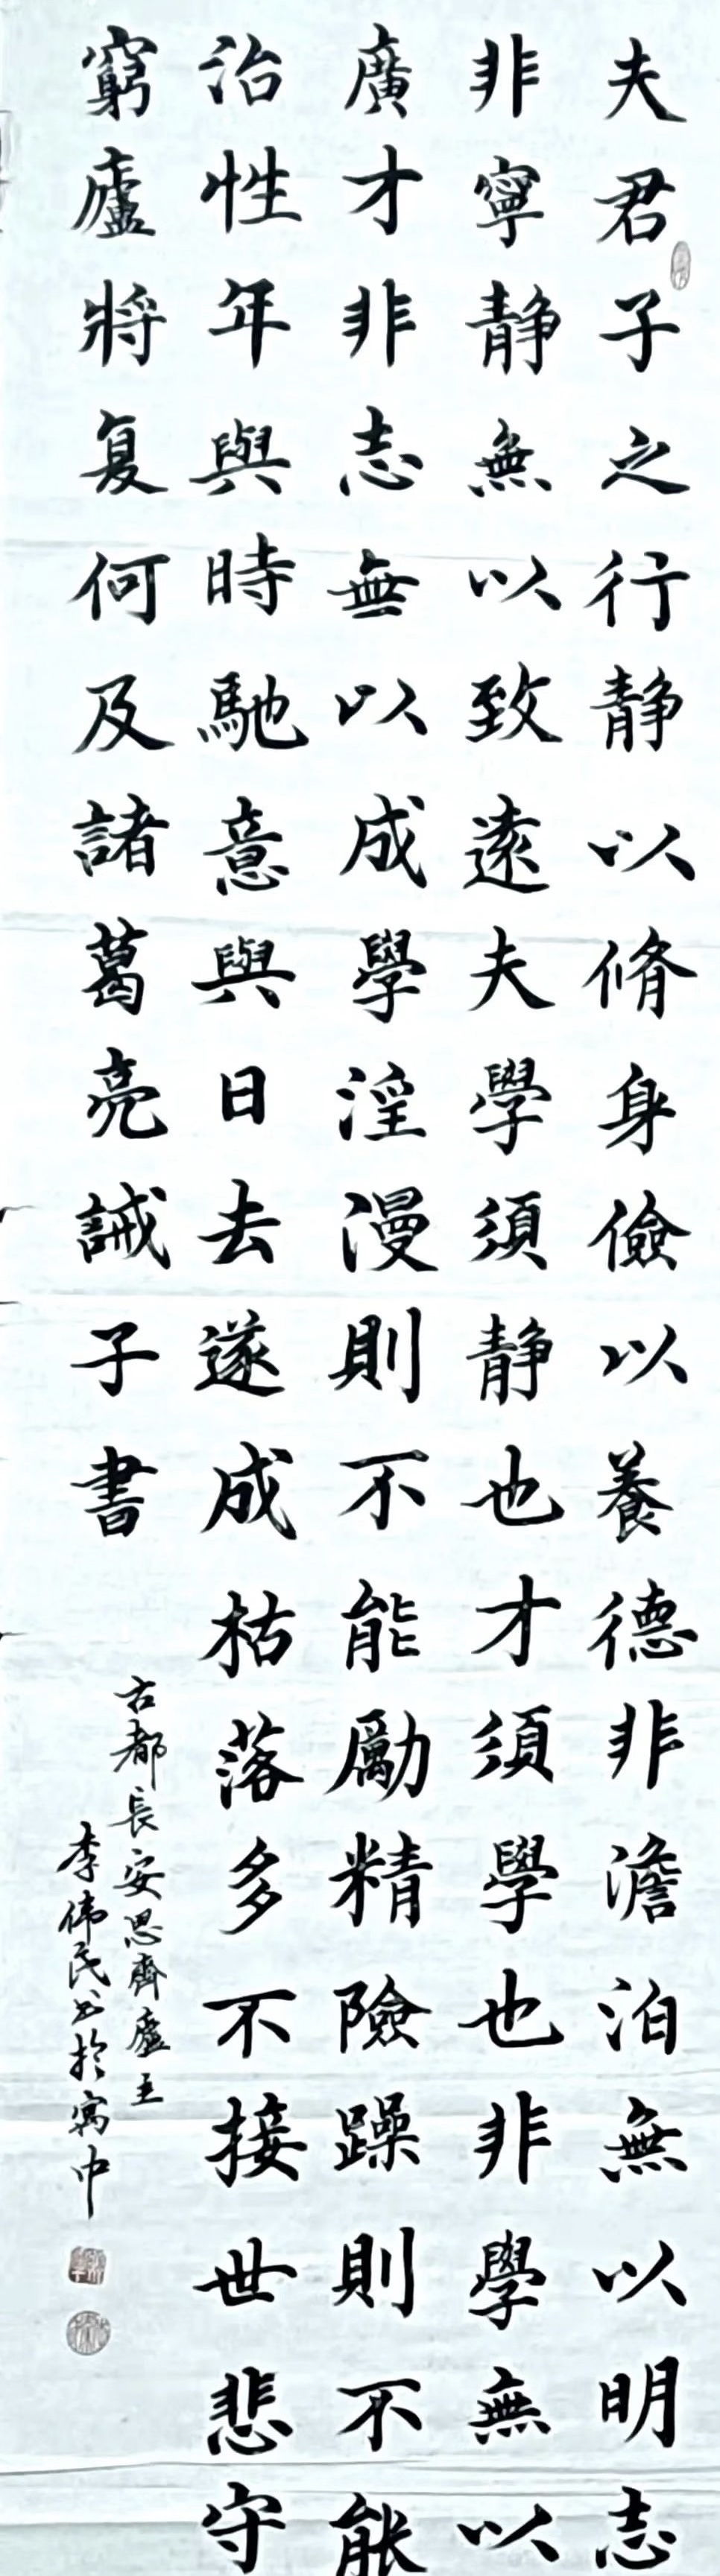 夫君子之行静以脩身儉以養德非澹泊無以明志
非寧静無以致遠夫學須静也才須學也非學無以
廣才非志無以成學淫漫則不能勵精險躁則不能
治性年與時馳意與日去遂成枯落多不接世悲守
窮廬將复何及諸葛亮誡子書
古都長安思齊廬主
李偉民书於寓中